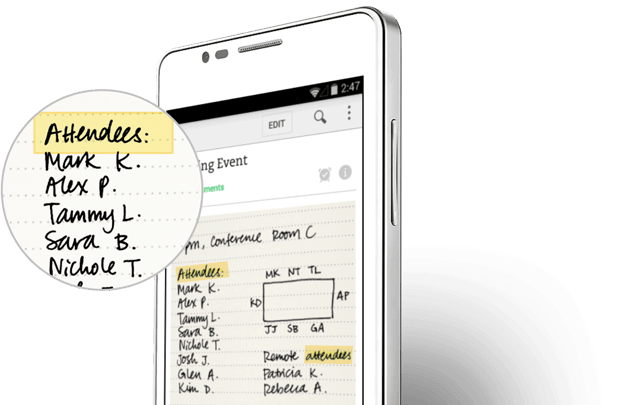 Attendees:
Mark K.
Alex P.
Tammy L.
Sara B.
Nichole T.
2:47
EDIT
Event
pm, Conference Room C
Attendees:
Mark K.
Alex P.
Tammy L.
Sara B.
Nichole T.
Josh J.
Glen A.
Kim D.
MK NT TL
KD
AP
JJ SB GA
Remote attendees
Patricia K.
Rebecca A.